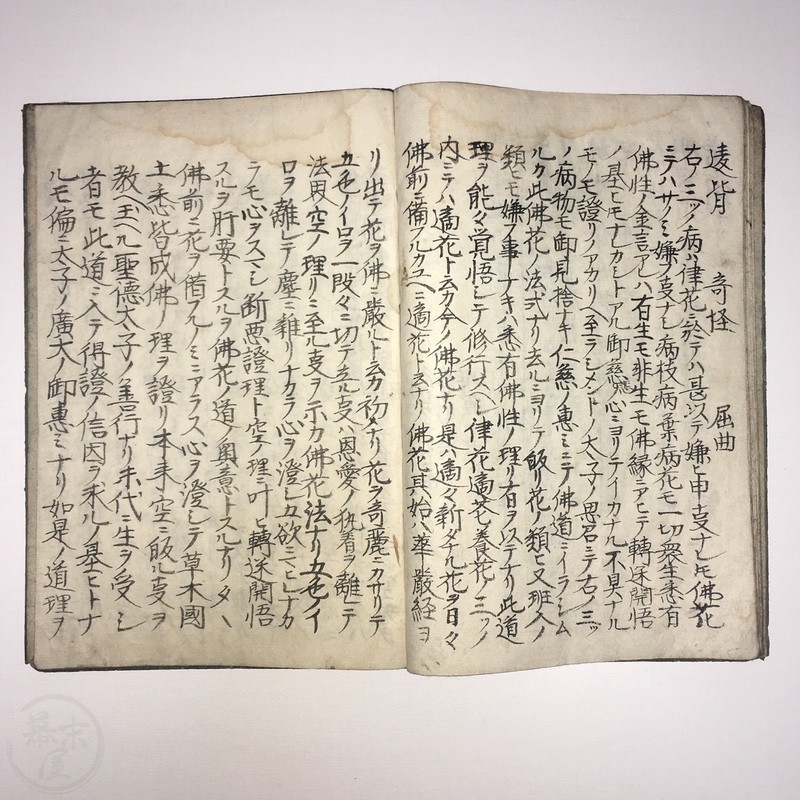 違背 奇怪 屈曲
右ノ三ツノ病ハ律花ニ於テハ甚以テ嫌ヒ申事ナレ𪜈佛花
ニテハサノミ嫌フ事ナシ病枝病葉病花モ一切衆生悉有
佛性ノ金言アレハ有生モ非生モ佛縁ニアヒテ轉迷開悟
ノ基ヒモナレカシトアル御慈悲ノ心ニヨリテイカナル不具ナル
モノモ證リノアカリヘ至ラシメントノ太子ノ思召ニテ右ノ三ツ
ノ病物モ御見捨ナキ仁慈ノ惠ミニテ佛道ニイラシム
ルカ此佛花ノ法式ナリ去ルニヨリテ皈リ花ノ類ヒ又斑入ノ
類ヒモ嫌フ事ナキハ悉有佛性ノ理リ有ヲ以テナリ此道
理ヲ能々覚悟シテ修行スヘシ律花適花養花ノ三ツノ
内ニテハ適花ト云カ今ノ佛花ナリ是ハ適々新タナル花ヲ日々
佛前ニ備フルカユヘニ適花ト云ナリ佛花其始ハ華嚴経ヨ
リ出テ花ヲ佛ニ嚴ルト云カ初ナリ花ヲ奇麗ニカサリテ
五色ノイロヲ一段々ニ切テ立ル事ハ恩愛ノ執着ヲ離レテ
法界空ノ理リニ至ル事ヲ示カ佛花ノ法ナリ五色ノイ
ロヲ離レテ塵ニ雜リナカラ心ヲ澄シ五欲ニヒレナカ
ラモ心ヲスマシ断悪證理ト空ノ理ニ叶ヒ轉迷開悟
スルヲ肝要トスルヲ佛花ノ道ノ奥意トスルナリタヽ
佛前ニ花ヲ備フルノミニアラス心ヲ澄シテ草木國
土悉皆成佛ノ理ヲ證リ本来空ニ皈ル事ヲ
教ヘ玉ヘル聖德太子ノ善行ナリ末代ニ生ヲ受シ
者モ此道ニ入テ得證ノ信因ヲ求ルノ基ヒトナ
ルモ偏ニ太子ノ廣大ノ御惠ミナリ如是ノ道理ヲ
幕末屋